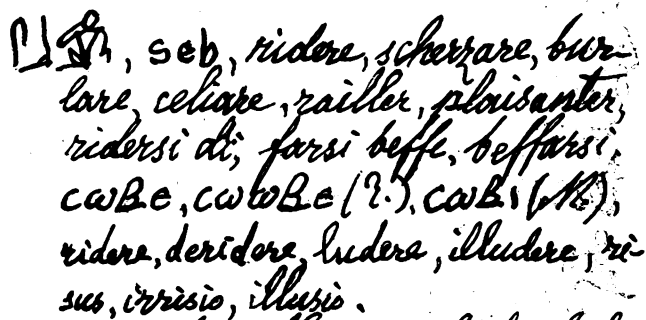 , seb, ridere, scherzare, bur-
lare, celiare, railler, plaisanter,
ridersi di, farsi beffe, beffarsi.
ⲥⲱⲃⲉ, ⲥⲱⲱⲃⲉ (?.), ⲥⲱⲃⲓ (M),
ridere, deridere, ludere, illudere, ri-
sus, irrisio, illusio.